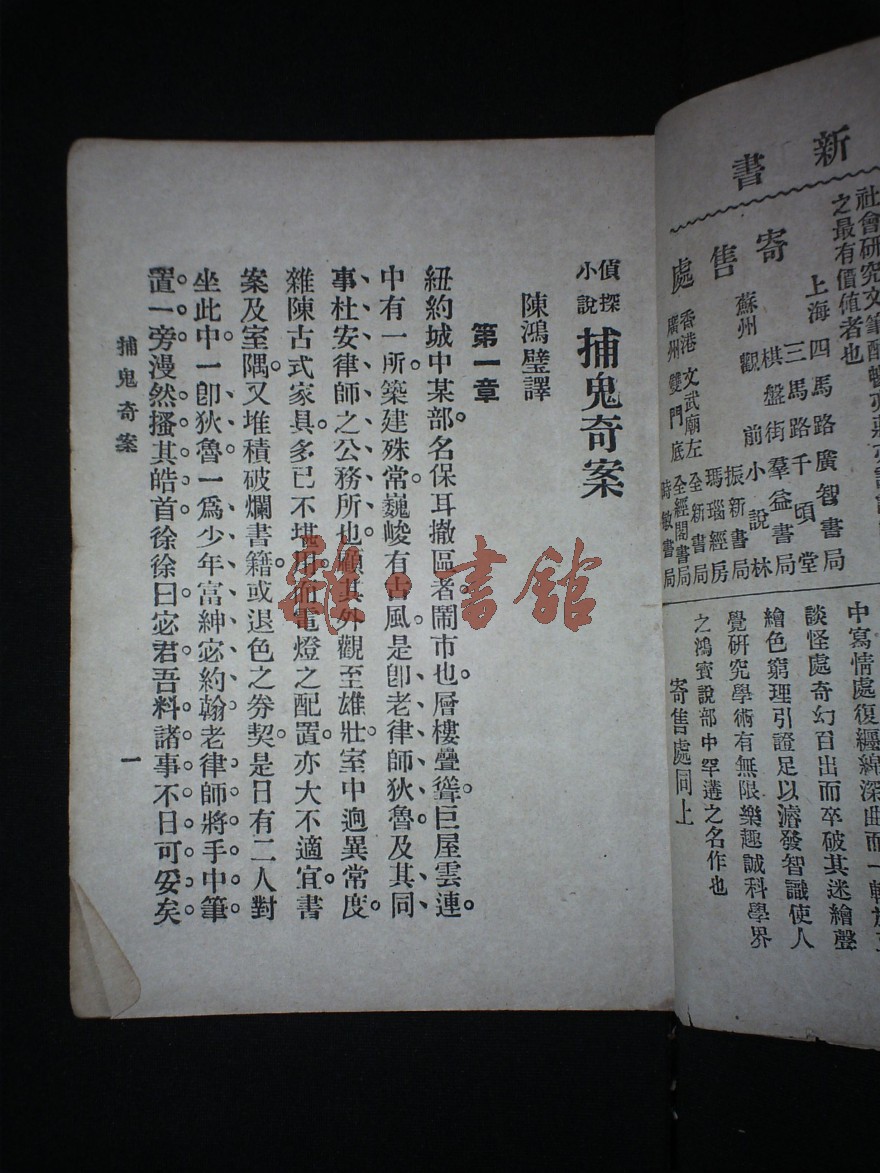 新書
社會研究文筆酣暢亦莊亦諧誠
之最有價値者也
寄售處
上海四馬路廣智書局
三馬路千頃堂
棋盤街羣益書局
小說林
蘇州觀前振新書局
瑪瑙經房
香港文武廟左全新書局
全經閣書局
廣州雙門底時敏書局
中寫情處復纏綿深曲而一轉於
談怪處奇幻百出而卒破其迷繪聲
繪色窮理引證足以濬發智識使人
覺研究學術有無限樂趣誠科學界
之鴻寶說部中罕遘之名作也
寄售處同上
偵探小說 捕鬼奇案
陳鴻璧譯
第一章
紐約城中某部。名保耳撤區者鬧市也。層樓疊聳。巨屋雲連。
中有一所。築建殊常。巍峻有古風。是卽老律師狄魯及其同
事杜安律師之公務所也。顧其外觀至雄壯。室中逈異常度。
雜陳古式家具。多已不堪用。而電燈之配置。亦大不適宜。書
案及室隅。又堆積破爛書籍。或退色之劵契。是日有二人對
坐此中。一卽狄魯。一爲少年富紳宓約翰。老律師將手中筆
置一旁。漫然搔其皓首。徐徐曰。宓君。吾料諸事不日可妥矣
捕鬼奇案
一
雜·書館